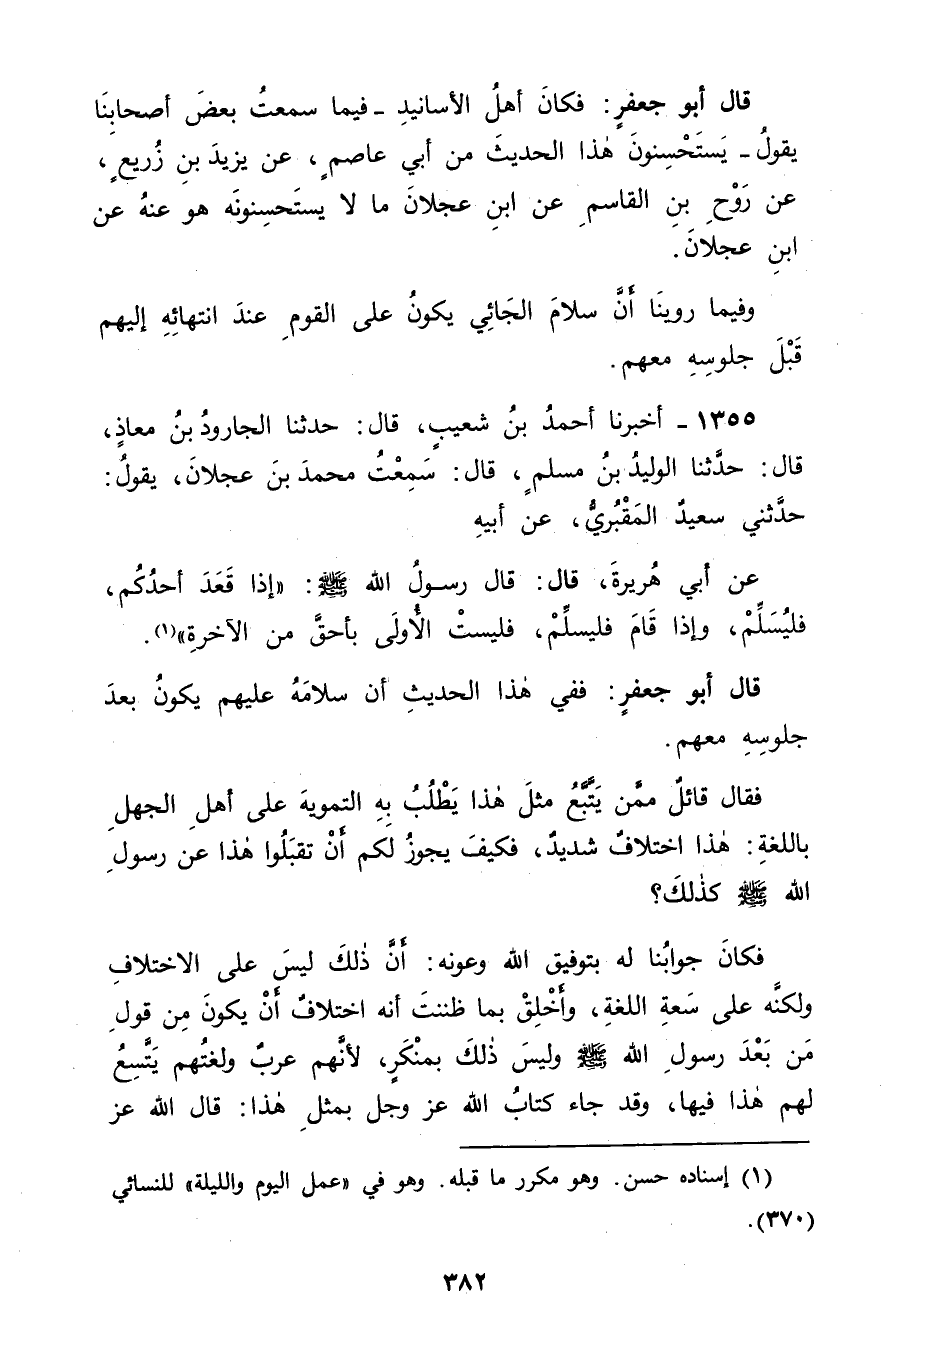 قال أبو جعفرٍ: فكانَ أهلُ الأسانيدِ ـ فيما سمعتُ بعضَ أصحابِنَا
يقولُ ـ يَستَحْسِنونَ هٰذا الحديثَ من أبي عاصمٍ، عن يزيدَ بنِ زُريعٍ،
عن رَوْحِ بنِ القاسمِ عن ابنِ عجلانَ ما لا يستَحسِنونَه هو عنهُ عن
ابنِ عجلانَ.
وفيما روينَا أَنَّ سلامَ الجَائِي يكونُ على القومِ عندَ انتهائِهِ إليهم
قَبْلَ جلوسِهِ معهم.
١٣٥٥ ـ أخبرنا أحمدُ بنُ شعيبٍ، قال: حدثنا الجارودُ بنُ معاذٍ،
قال: حدَّثنا الوليدُ بنُ مسلمٍ، قال: سَمِعْتُ محمدَ بنَ عجلانَ، يقولُ:
حدَّثني سعيدٌ المَقْبُريُّ، عن أبيهِ
عن أبي هُريرةَ، قال: قال رسولُ الله ﷺ: «إذا قَعَدَ أحدُكُم،
فليُسَلِّمْ، وإذا قَامَ فليسلِّمْ، فليستْ الْأُولَى بأحقَّ من الآخرةِ»(١).
قال أبو جعفرٍ: ففي هٰذا الحديثِ أن سلامَهُ عليهم يكونُ بعدَ
جلوسِهِ معهم.
فقال قائلٌ ممَّن يَتَّبَّعُ مثلَ هٰذا يَطْلُبُ بِهِ التمويهَ على أهلِ الجهلِ
باللغةِ: هٰذا اختلافٌ شديدٌ، فكيفَ يجوزُ لكم أَنْ تقبَلُوا هٰذا عن رسولِ
الله ﷺ كذٰلكَ؟
فكانَ جوابُنا له بتوفيق الله وعونه: أَنَّ ذٰلكَ ليسَ على الاختلافِ
ولكنَّه على سَعةِ اللغةِ، وأَخْلِقْ بما ظننتَ أنه اختلافٌ أَنْ يكونَ مِن قولِ
مَن بَعْدَ رسولِ الله ﷺ وليسَ ذٰلكَ بمنْكَرٍ، لأنَّهم عربٌ ولغتُهم يَتَّسِعُ
لهم هٰذا فيها، وقد جاء كتابُ الله عز وجل بمثلِ هٰذا: قال الله عز
(١) إسناده حسن. وهو مكرر ما قبله. وهو في «عمل اليوم والليلة» للنسائي
(٣٧٠).
٣٨٢